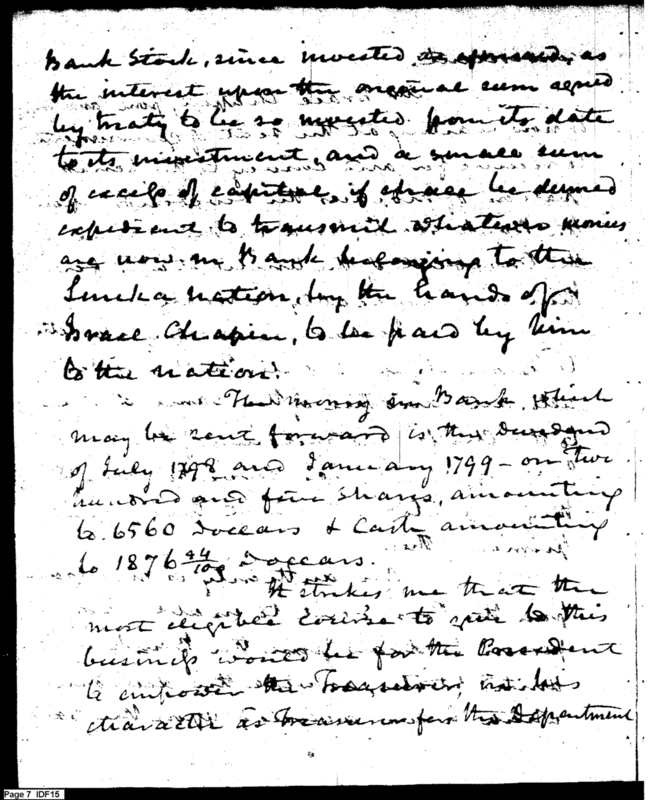 Bank Stock, since invested as
the interest upon the original sum agreed
by treaty to be so invested from its date
to its investment, and a small sum
of excess of capital, if it shall be deemed
expedient to transmit whatever monies
are now in Bank belonging to the
Seneka nation, by the hands of
Israel Chapin, to be paid by him
to the nation.
The money in Bank, which
may be sent forward is the dividend
of July 1798 and January 1799 - on two
hundred and five Shares, amounting
to 6560 Doccars & Cash amounting
to 1876 44/100 Doccars.
It strikes me that the
most eligible course to give to this
business would be for the President
to empower the Treasurer in his
character as Treasurer for the Department
Page 7 IDF15